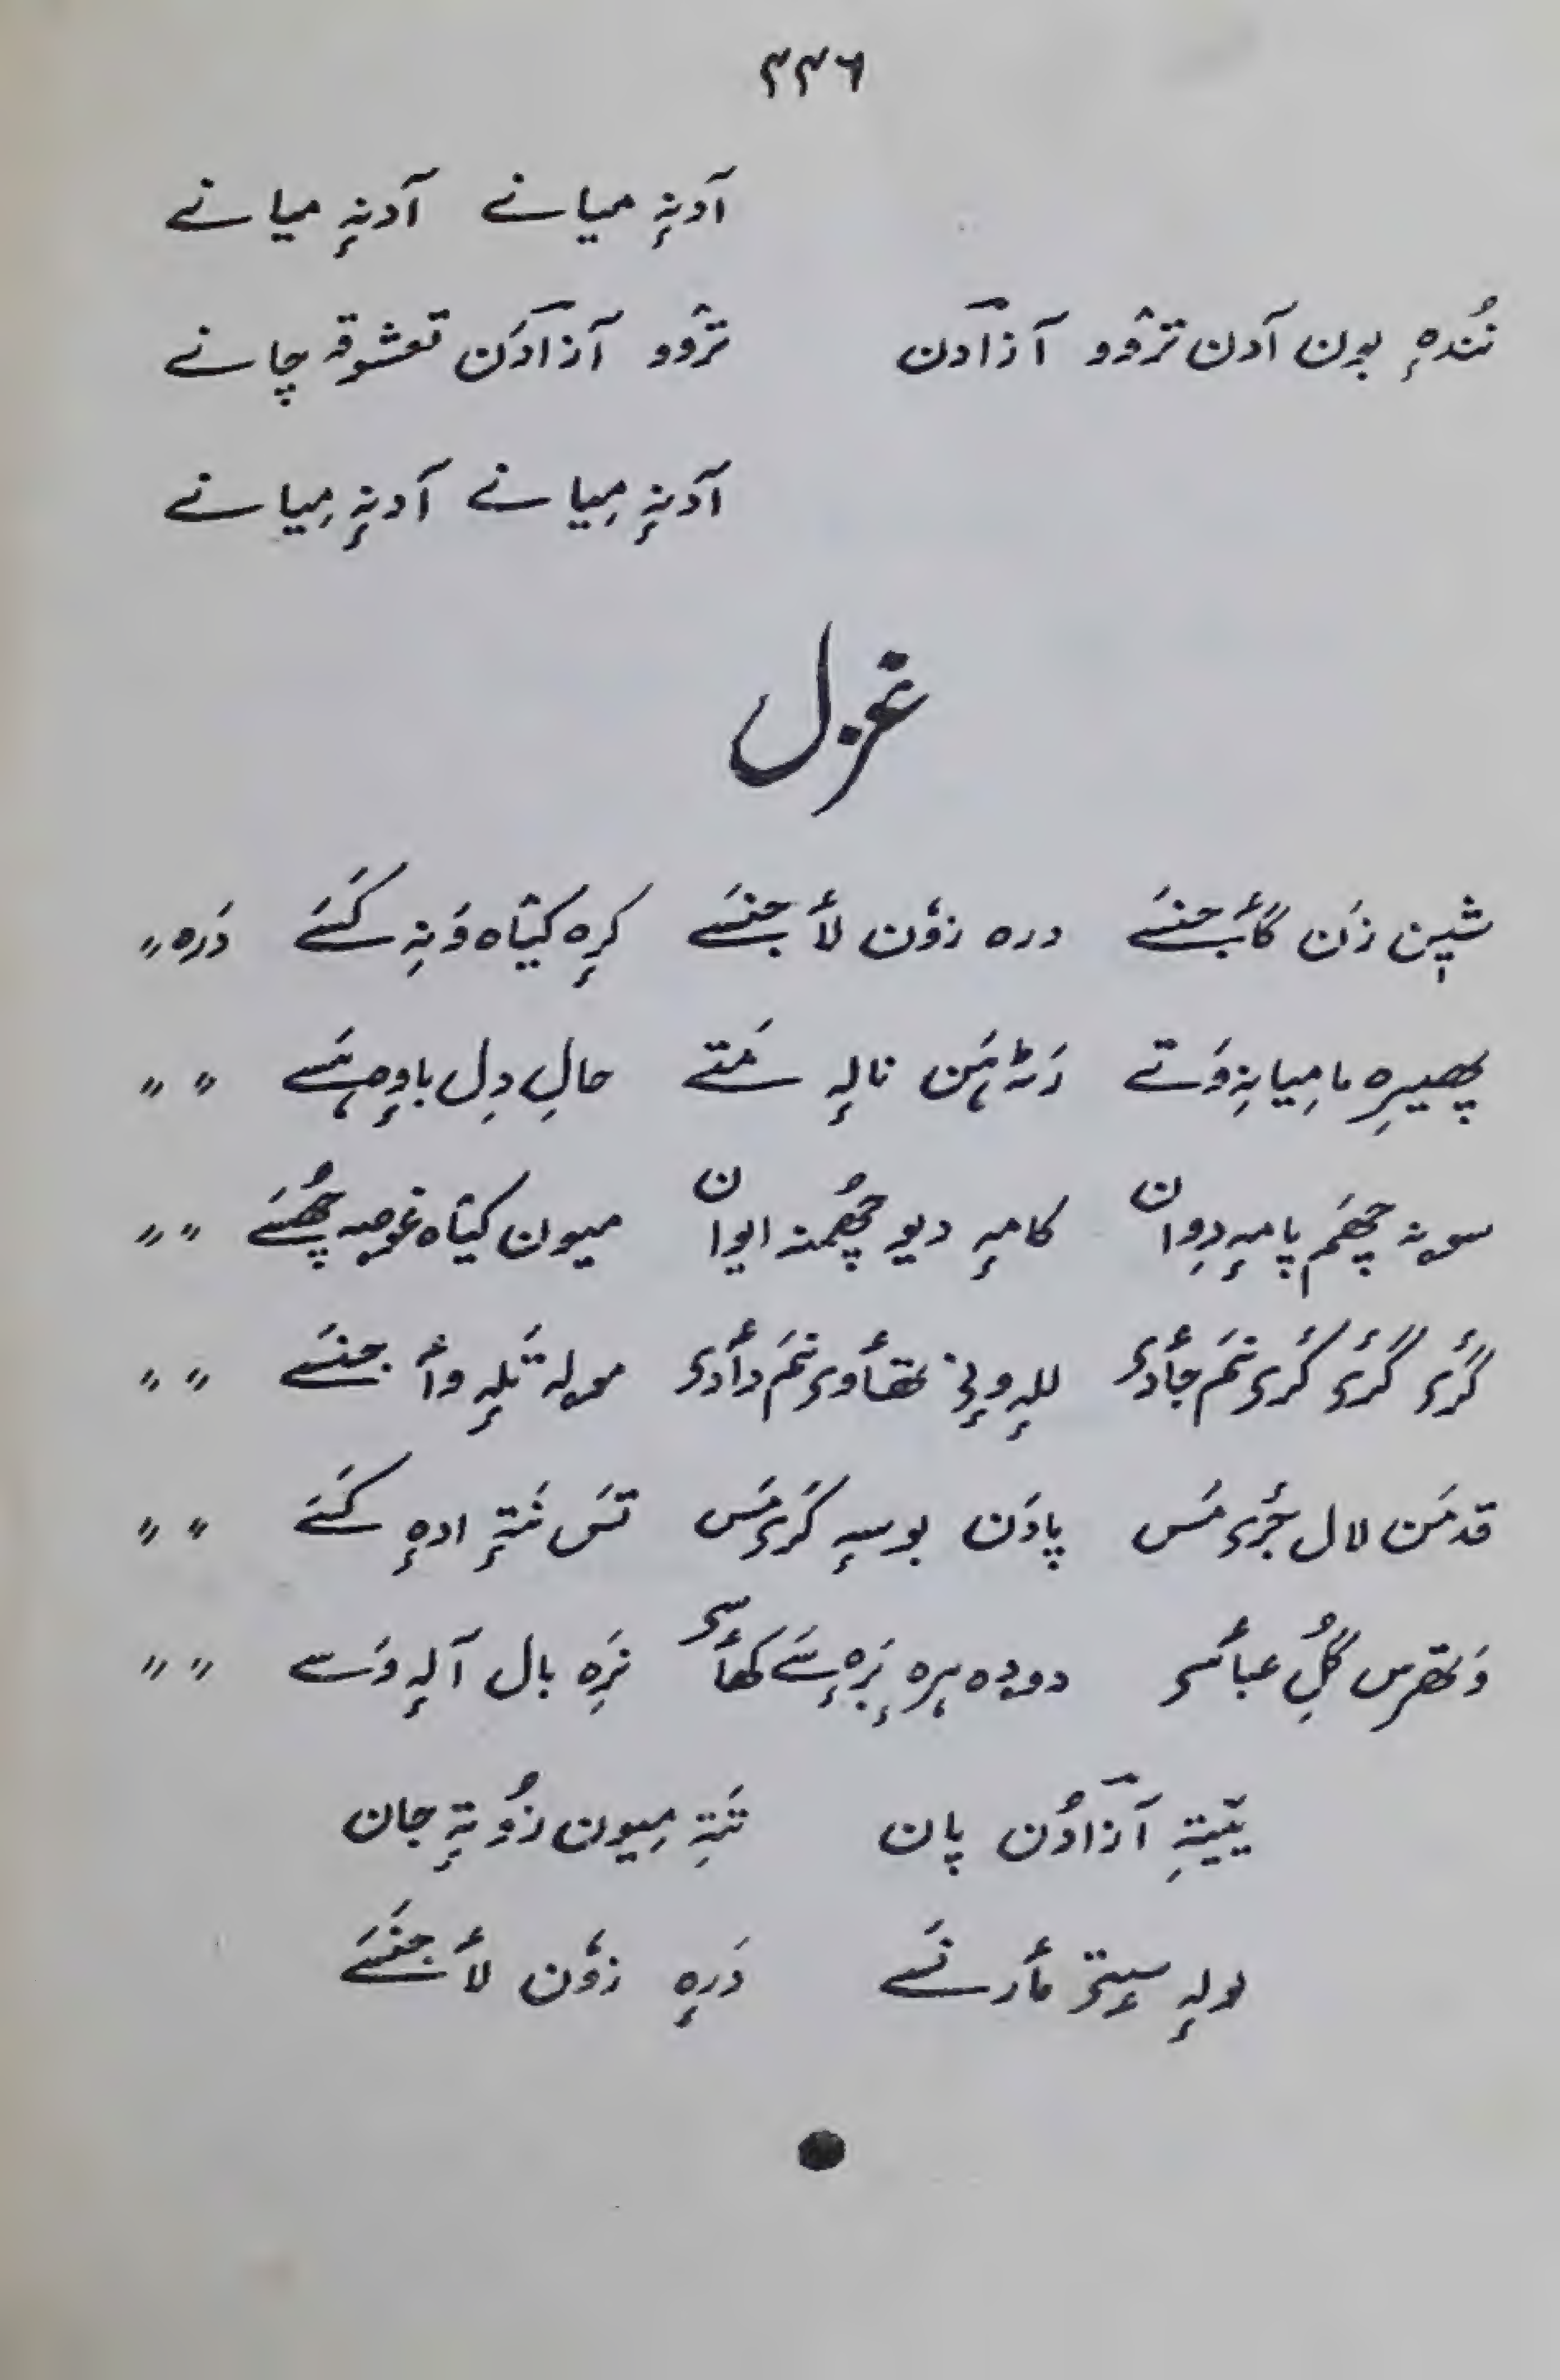 ۳۳۶
آدنہٕ میانے آدنہٕ میانے
نُندہٕ بون آدن ترٛوو آزادن ترٛوو آزادَن تعشوقہ چانے
آدنہٕ مِیانے آدنہٕ مِیانے
غزل
شیٖن زَن گأجنسَے درہ زوٗن لأجنسَے کرٕہ کیٛاہ وَنہِ کَسَے دَرہ〃
پھیرِہ نا میانہِ وَتے رَٹہٕ ہَن نالہٕ مَتے حالِ دِل باوٕ ہَسے 〃 〃
سونہ چھَم پامہٕ دِوان کامہِ دیو چھُمنہ ایوان میون کیٛاہ غوصہ چھُسَے 〃 〃
گَرۍ گَرۍ کَرۍ نَم جأدۍ للہٕ وٕنۍ تھأوۍ نَم دأدۍ مولہ تَلہٕ وأجنسَے 〃 〃
قدمَن لال جٔرۍ مَس پادَن بوسہٕ کَرۍ مَس تَس نَتہٕ ادہٕ کَسَے 〃 〃
وَتھرس گُلِ عبأسۍ دودہ ہرہ بَرٕہ سَے کھأسۍ نَرِہ نال آلہٕ وَسے 〃 〃
یَیتہِ آزادُن پان تَتہِ مِیون زُو تہٕ جان
لولہٕ سیٖتۍ مأرنَسے دَرہٕ زوٗن لأجنسَے